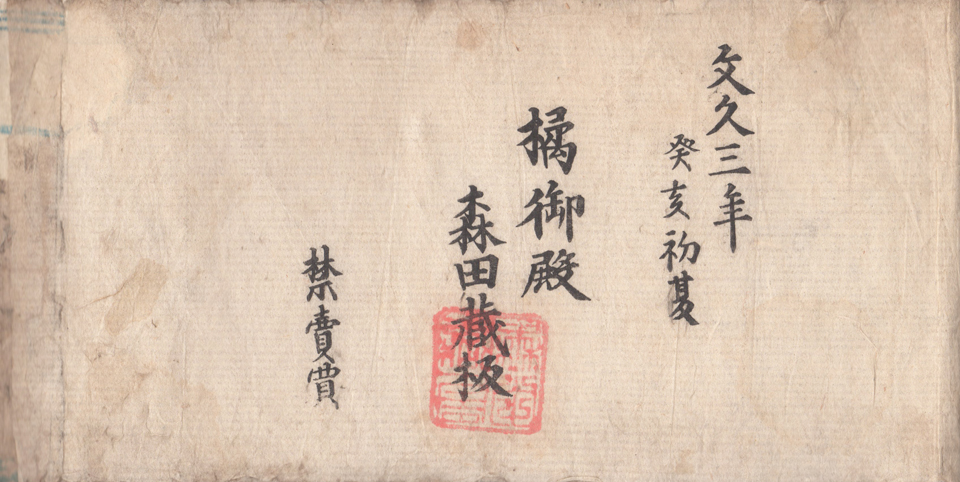 文久三年
癸亥初夏
橘御殿
森田藏板
禁賣買